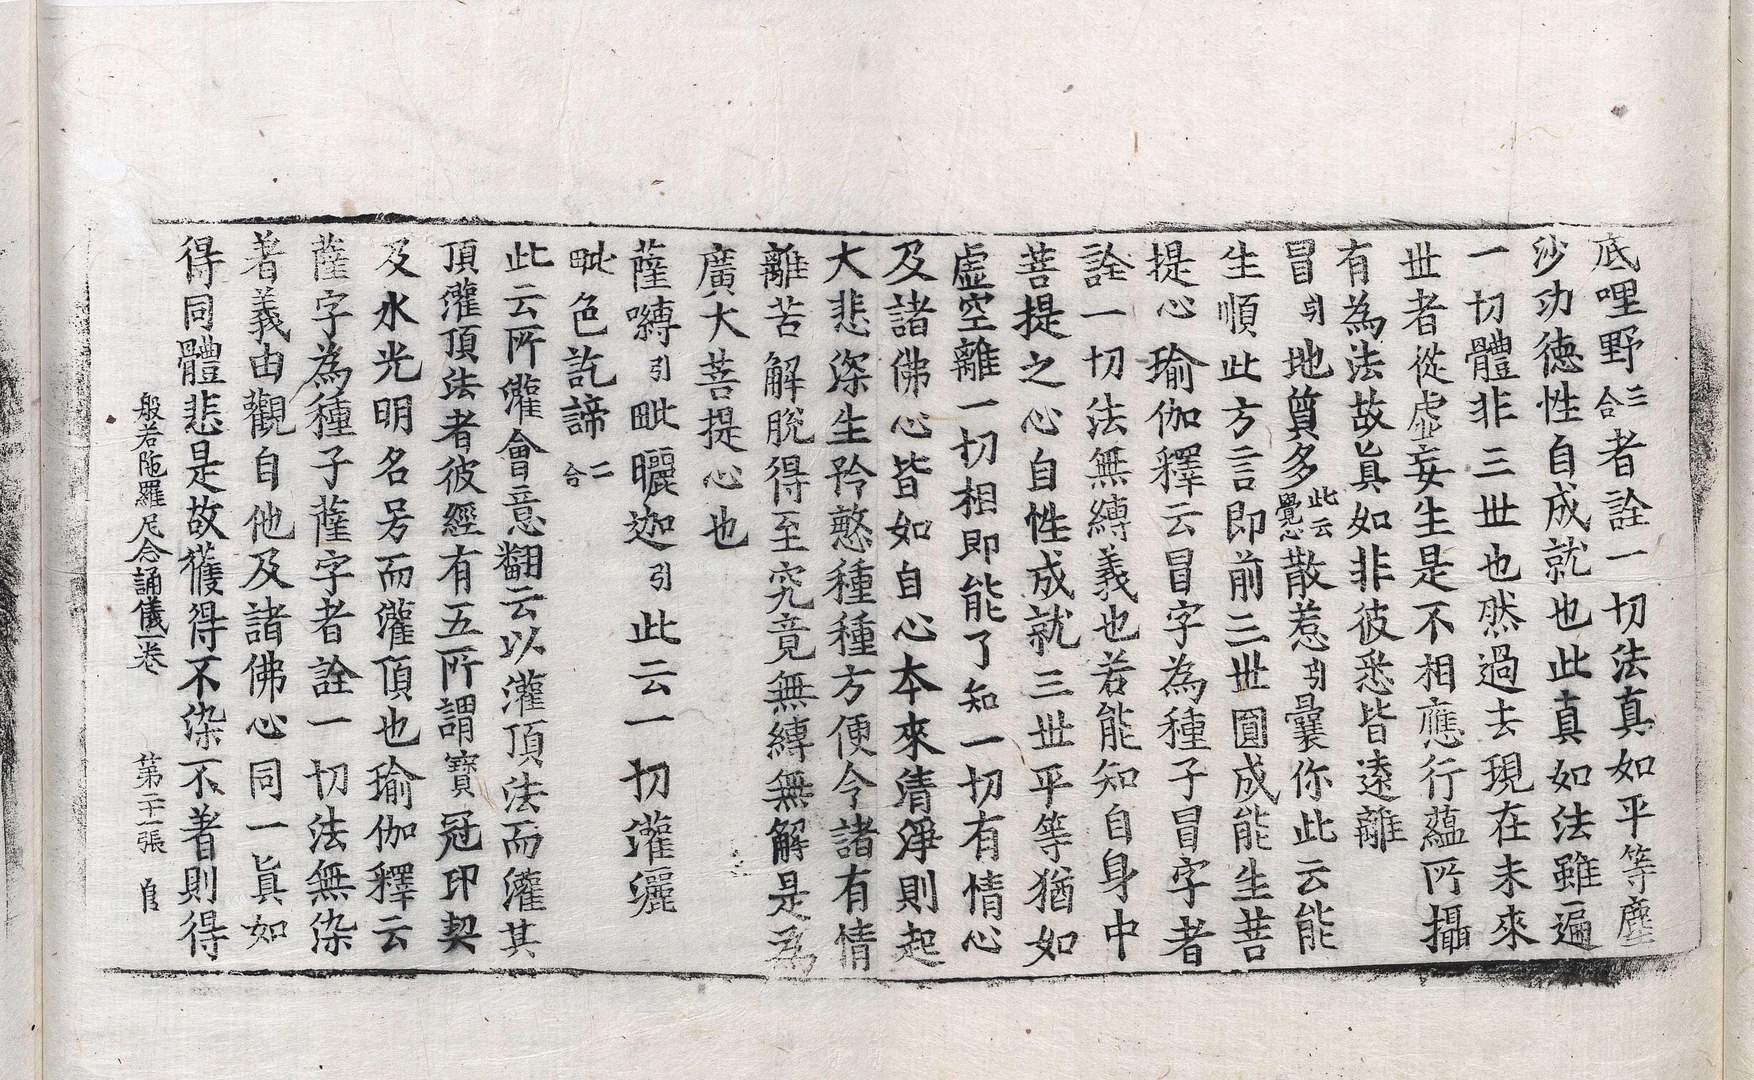 底哩野三合者詮一切法真如平等塵
沙功德性自成就也此真如法雖遍
一切體非三世也然過去現在未來
世者從虛妄生是不相應行蘊所攝
有為法故真如非彼悉皆遠離
冒引地質多此云覺心散惹引曩你此云能
生順此方言即前三世圓成能生菩
提心瑜伽釋云冒字為種子冒字者
詮一切法無縛義也若能知自身中
菩提之心自性成就三世平等猶如
虛空離一切相即能了知一切有情心
及諸佛心皆如自心本來清淨則起
大悲深生矜愍種種方便令諸有情
離苦解脫得至究竟無縛無解是為
廣大菩提心也
薩嚩引毗曬迦引此云一切灌灑
毗色訖諦二合
此云所灌會意翻云以灌頂法而灌其
頂灌頂法者彼經有五所謂寶冠印契
及水光明名号而灌頂也瑜伽釋云
薩字為種子薩字者詮一切法無染
著義由觀自他及諸佛心同一真如
得同體悲是故獲得不染不著則得
般若陁羅尼念誦儀一卷　第二十一張　自